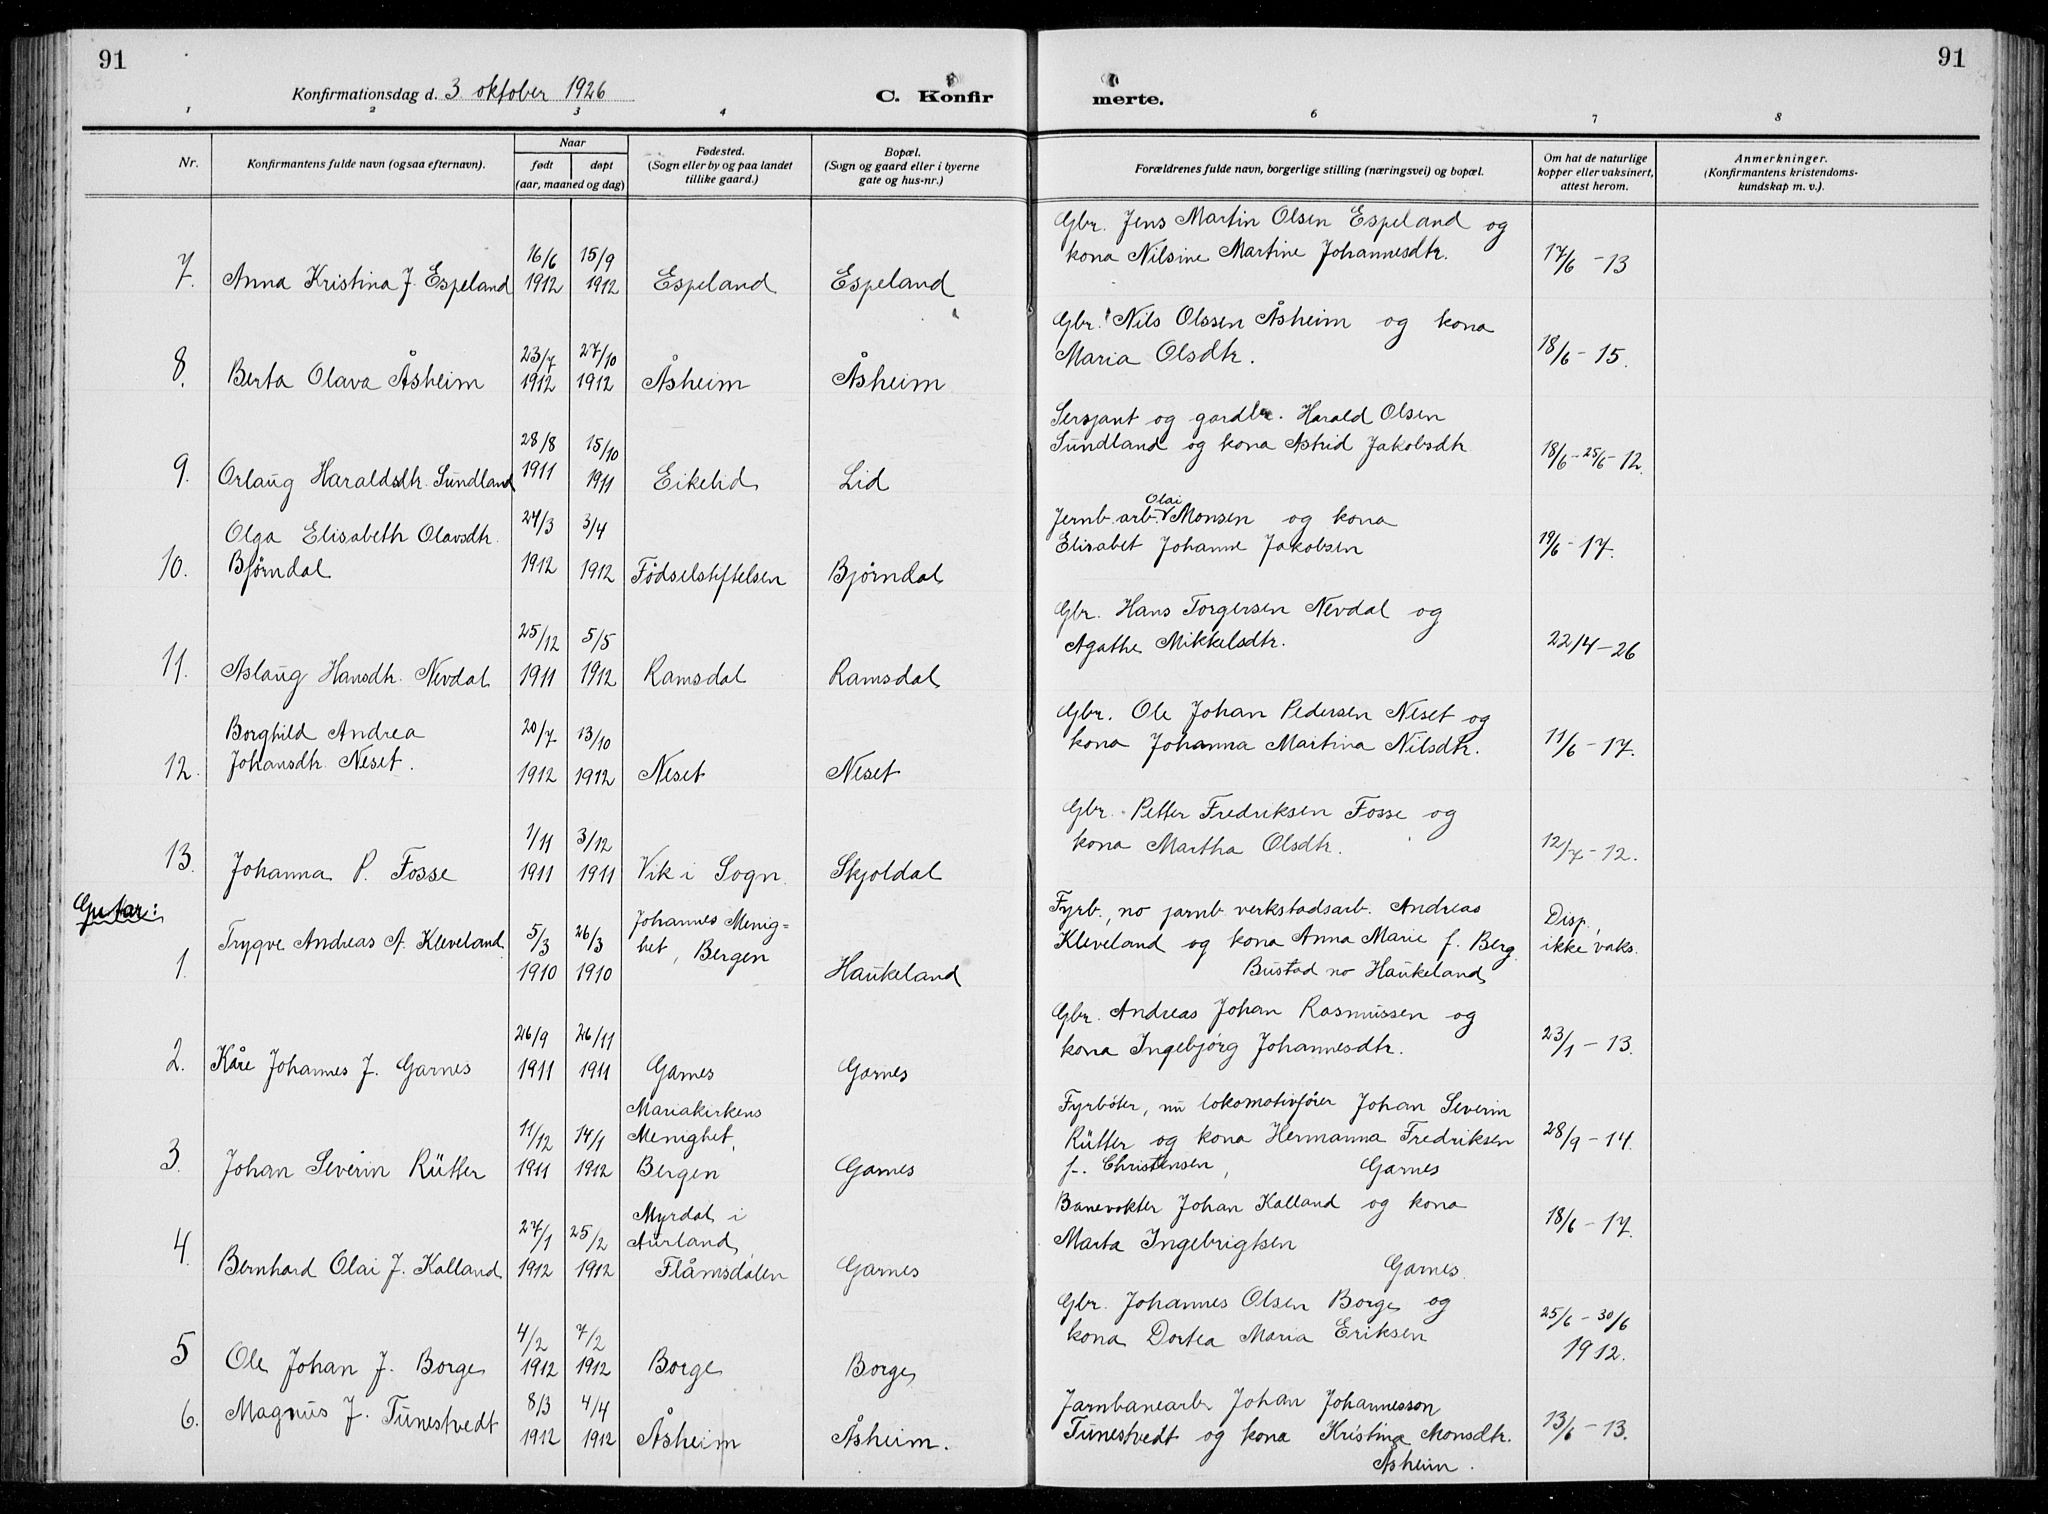 91
91
Konfirmationsdag d. 3 oktober 1926
C. Konfir
merte.
1 2 3 4 5 6 7 8
Nr.
Konfirmantens fulde navn (ogsaa efternavn).
Naar
født
døpt
(aar, maaned og dag)
Fødested.
(Sogn eller by og paa landet
tillike gaard.)
Bopæl.
(Sogn og gaard eller i byerne
gate og hus-nr.)
Forældrenes fulde navn, borgerlige stilling (næringsvei) og bopæl.
Om hat de naturlige
kopper eller vaksinert,
attest herom.
Anmerkninger.
(Konfirmantens kristendoms-
kundskap m. v.).
Gbr. Jens Martin Olsen Espeland og
kona Nilsine Martine Johannesdtr. 17/6 - 13
16/6 15/9
7. Anna Kristina J. Espeland 1912 1912 Espeland Espeland
Gbr. Nils Olssen Åsheim og kona
Maria Olsdtr. 18/6 - 15.
23/7 27/10
8. Berta Olava Åsheim 1912 1912 Åsheim Åsheim
Sersjant og gardbr. Harald Olsen
Sundland og kona Astrid Jakobsdtr 18/6 - 25/6 - 12.
28/8 15/10
9. Orlaug Haraldsdtr. Sundland 1911 1911 Eikelid Lid
Jernb. arb. Olai Monsen og kona
Elisabet Johanne Jakobsen 19/6 - 17.
Olga Elisabeth Olavsdtr. 27/3 3/4
10. Bjørndal 1912 1912 Fødselstiftelsen Bjørndal
Gbr. Hans Torgersen Nevdal og
Agathe Mikkelsdtr. 22/4 - 26
25/12 5/5
11. Aslaug Hansdtr. Nevdal 1911 1912 Ramsdal Ramsdal
Gbr. Ole Johan Pedersen Neset og
kona Johanna Martina Nilsdtr. 11/6 - 17.
Borghild Andrea 20/7 13/10
12. Johansdtr. Neset. 1912 1912 Neset Neset
Gbr. Petter Fredriksen Fosse og
kona Martha Olsdtr. 12/7 - 12.
1/11 3/12
13. Johanna P. Fosse 1911 1911 Vik i Sogn. Skjoldal
Gutar:
Fyrb., no jarnb. verkstadsarb. Andreas Disp.,
Kleveland og kona Anna Marie f. Berg. ikke vaks.
Bustad no Haukeland
Trygve Andreas A. Kleveland 5/3 26/3 Johannes Menig=
het, Bergen
1. 1910 1910 Haukeland
Gbr. Andreas Johan Rasmussen og
kona Ingebjørg Johannesdtr. 23/1 - 13.
26/9 26/11
2. Kåre Johannes J. Garnes 1911 1911 Garnes Garnes
Fyrbøter, nu lokomotivfører Johan Severin
Rütter og kona Hermanna Fredriksen 28/9 - 14.
f. Christensen, Garnes
Mariakirkens
11/12 14/1 Menighet,
3. Johan Severin Rütter 1911 1912 Bergen Garnes
Banevokter Johan Kalland og kona 18/6 - 17.
Marta Ingebrigtsen
Garnes.
Myrdal i
27/1 25/2 Aurland,
4. Bernhard Olai J. Kalland 1912 1912 Flåmsdalen Garnes
Gbr. Johannes Olsen Borge og 25/6 - 30/6
kona Dortea Maria Eriksen 1912.
4/2 7/2
5 Ole Johan J. Borge 1912 1912 Borge Borge
Jarnbanearb Johan Johannesson
Tunestvedt og kona Kristina Monsdtr. 13/6 - 13.
Åsheim.
8/3 4/4
6. Magnus J. Tunestvedt 1912 1912 Åsheim Åsheim.